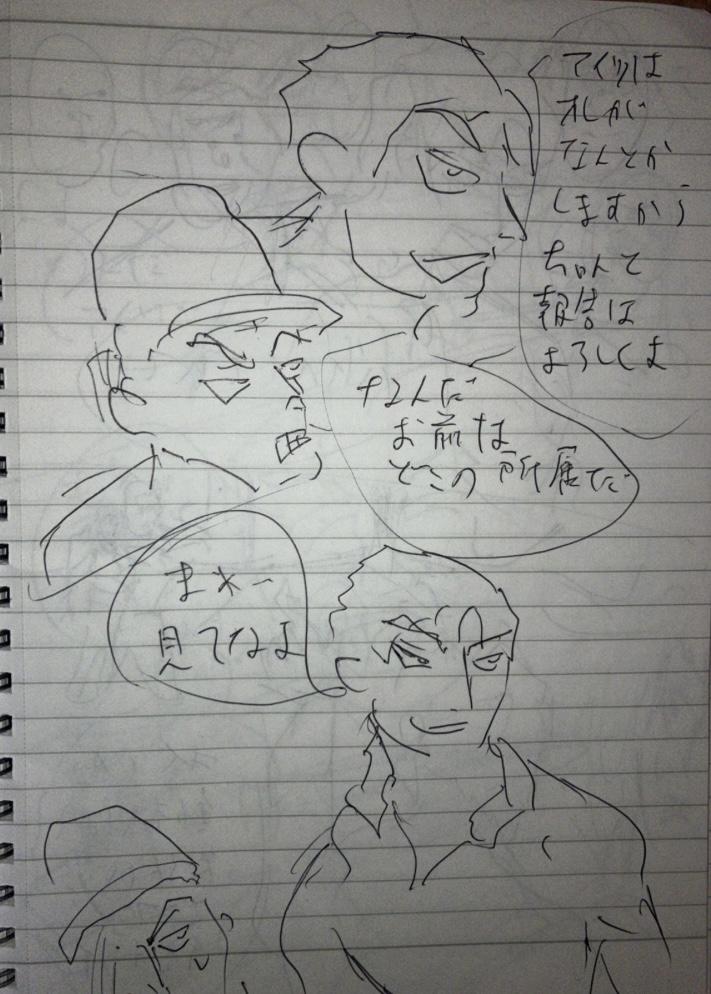 アイツは
オレが
なんとか
しますから
ちゃんと
報告は
よろしくよ
なんだ
お前は
どこの所属だ
まぁー
見てなよ